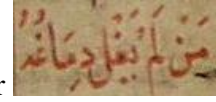 مَنْ لَمْ يَغْلِ دِمَاغُهُ